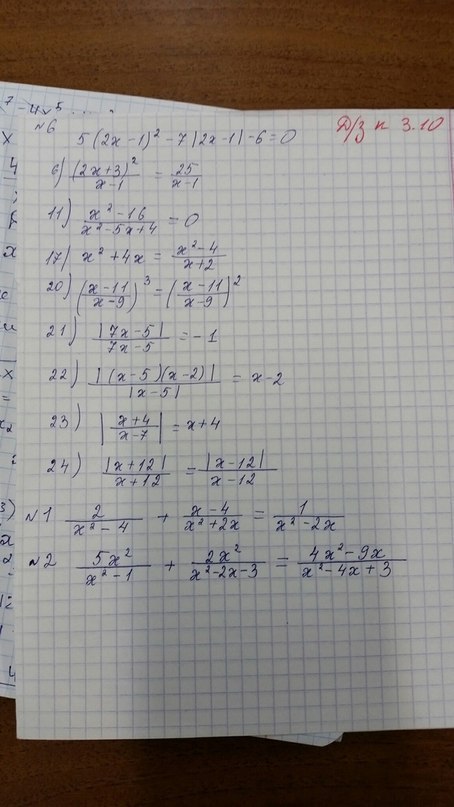 Д/з к 3.10
№6
5(2x-1)² -7|2x-1|-6=0
6) (2x+3)²/(x-1) = 25/(x-1)
11) (x²-16)/(x²-5x+4) = 0
17) x²+4x = (x²-4)/(x+2)
20) ((x-11)/(x-9))³ = ((x-11)/(x-9))²
21) |7x-5|/(7x-5) = -1
22) |(x-5)(x-2)|/|x-5| = x-2
23) |(x+4)/(x-7)| = x+4
24) |x+12|/(x+12) = |x-12|/(x-12)
№1 2/(x²-4) + (x-4)/(x²+2x) = 1/(x²-2x)
№2 5x²/(x²-1) + 2x²/(x²-2x-3) = (4x²-9x)/(x²-4x+3)